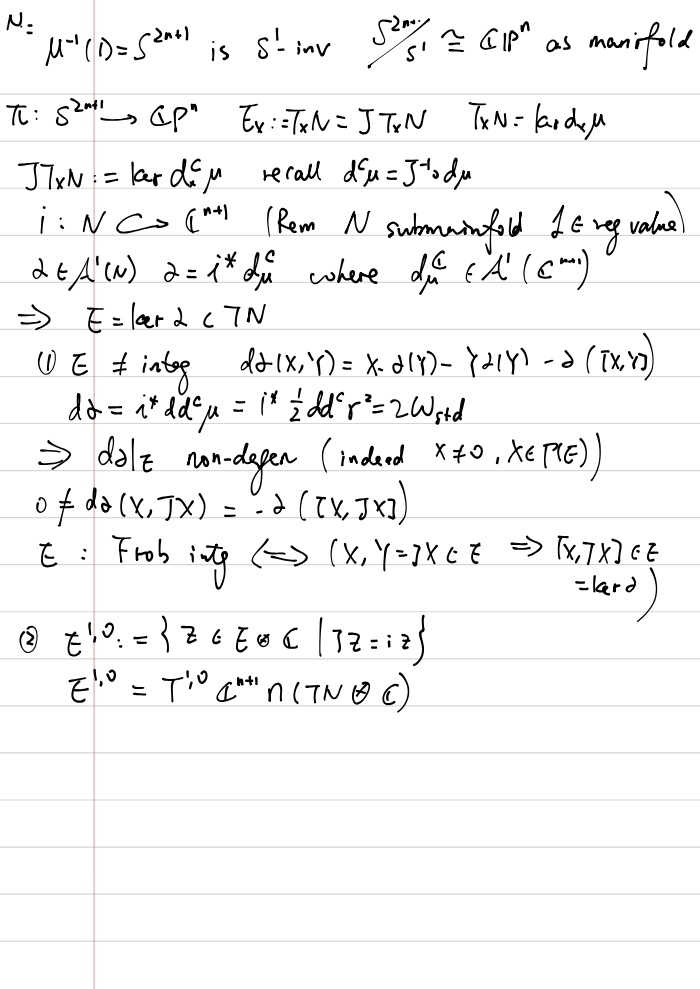 N:=
μ⁻¹(1) = S²ⁿ⁺¹ is S¹-inv S²ⁿ⁺¹/S¹ ≅ ℂℙⁿ as manifold
π: S²ⁿ⁺¹ → ℂPⁿ Eₓ := TₓN = JTₓN TₓN = ker dₓμ
JTₓN := ker dₓᶜμ recall dᶜμ = J⁻¹∘dμ
i : N ↪ ℂⁿ⁺¹ (Rem N submainfold 1 ∈ reg value)
α ∈ A¹(N) α = i* dᶜμ where dᶜμ ∈ A¹(ℂⁿ⁺¹)
⇒ E = ker α ⊂ TN
① E ≠ integ dα(X,Y) = X·α(Y) - Yα(Y) - α([X,Y])
dα = i* ddᶜμ = i* ½ddᶜr² = 2ω_std
⇒ dα|_E non-degen (indeed X≠0, X∈Γ(E))
0 ≠ dα(X,JX) = -α([X,JX])
E : Frob integ ⟺ (X, Y=JX ∈ E ⇒ [X,JX] ∈ E
= ker α)
② E¹,⁰ := {Z ∈ E⊗ℂ | JZ = iZ}
E¹,⁰ = T¹,⁰ ℂⁿ⁺¹ ∩ (TN⊗ℂ)